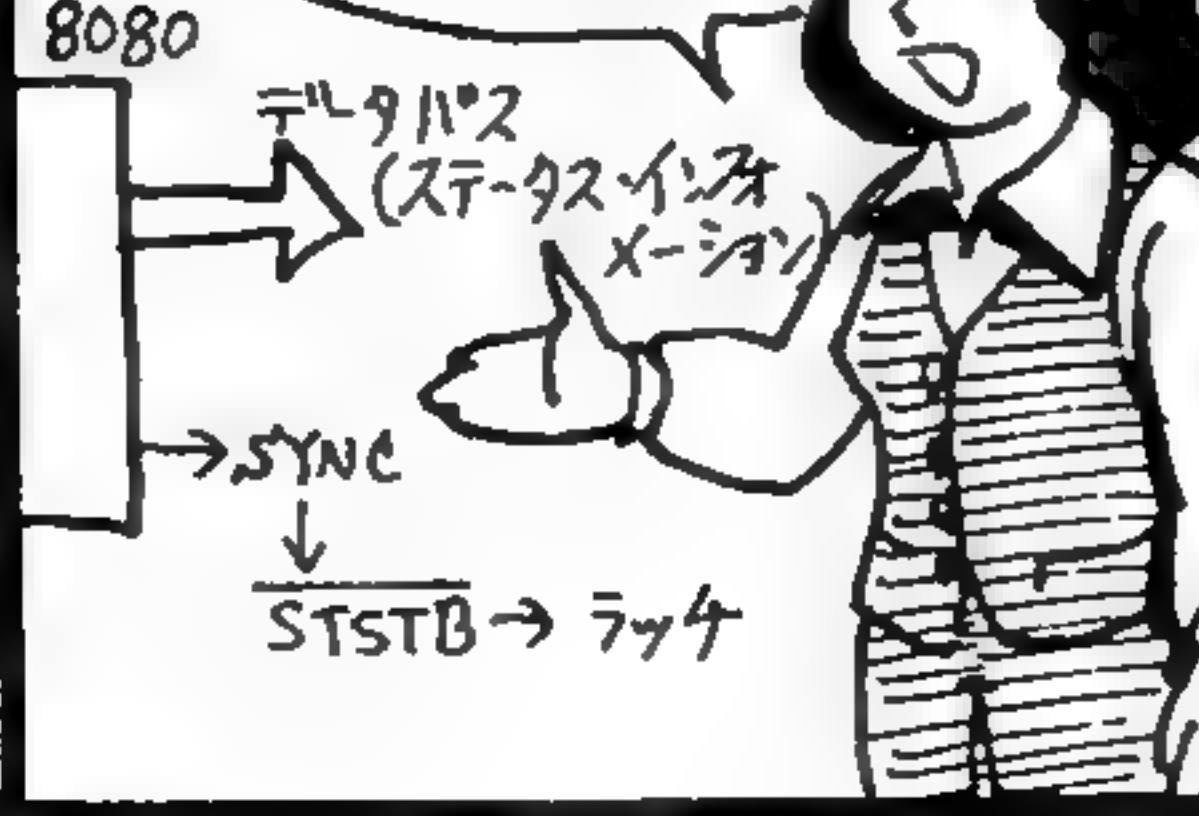 8080
データバス
(ステータス・インフォ
メーション)
→SYNC
↓
S̅T̅S̅T̅B̅→ラッチ